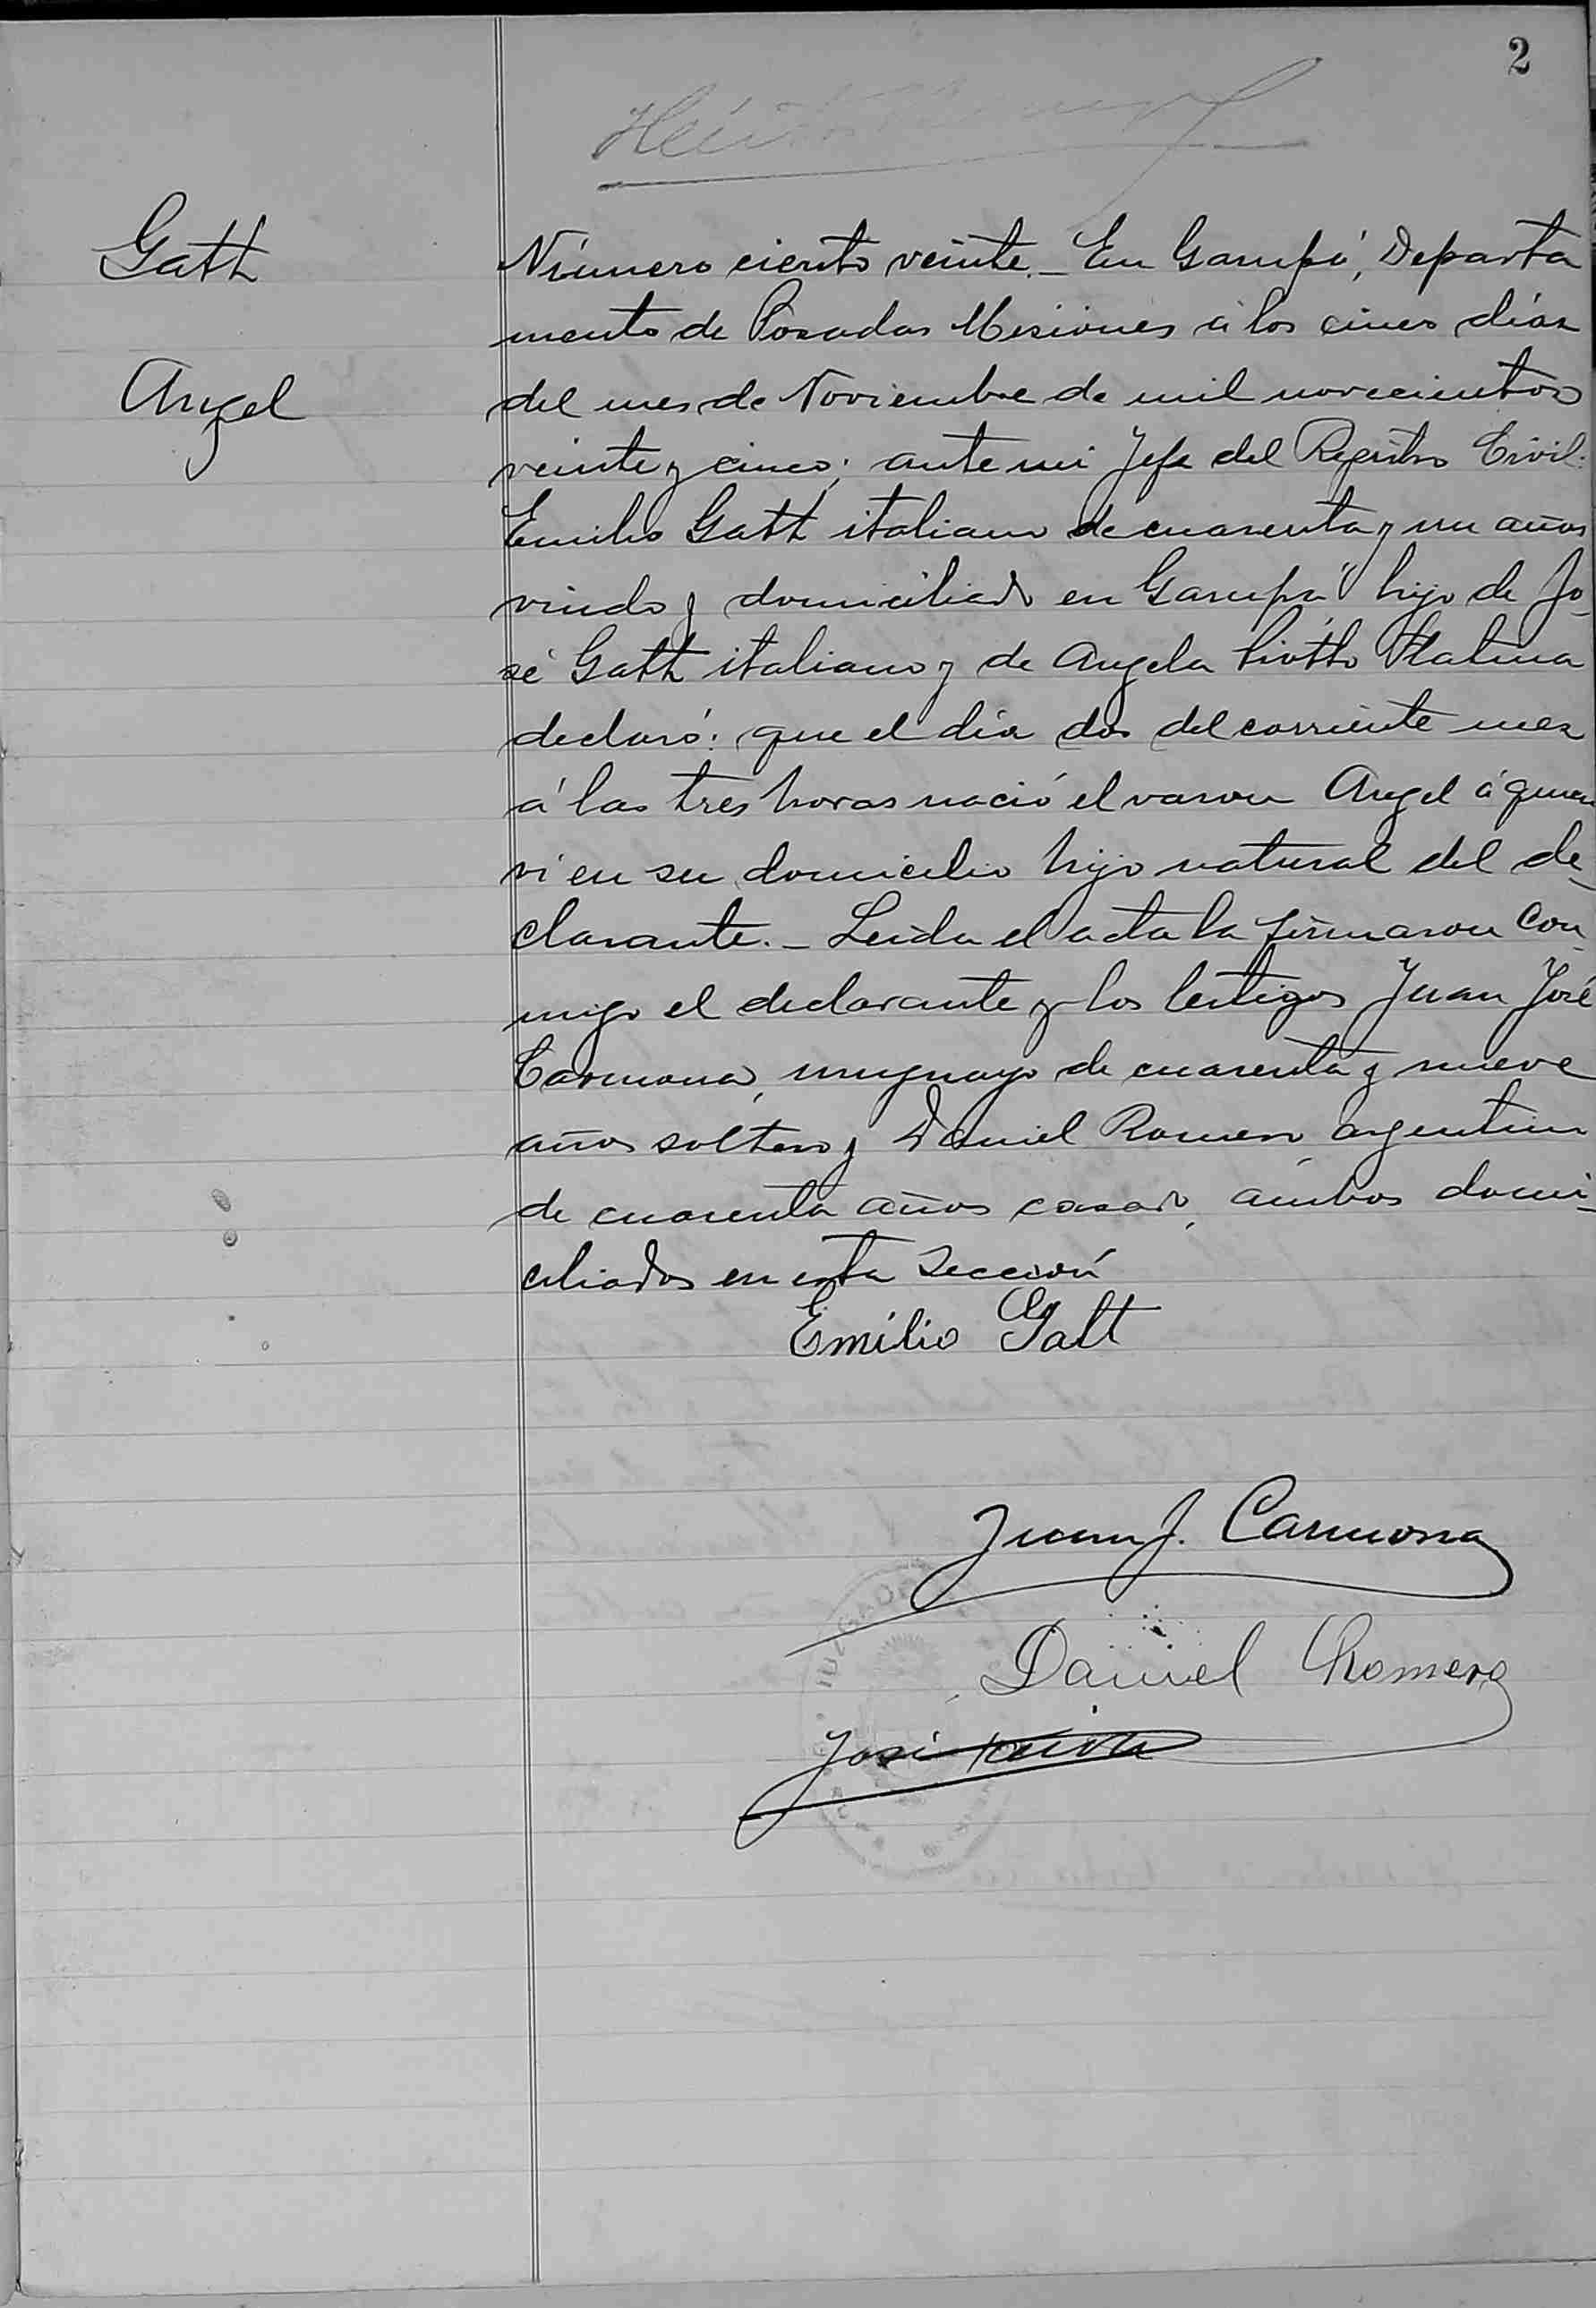 2
Gatt
Angel
Número ciento veinte._ En Garupá, Departa
mento de Posadas Misiones á los cinco dias
del mes de Noviembre de mil novecientos
veinte y cinco; ante mi Jefe del Registro Civil:
Emilio Gatt italiano de cuarenta y un años
viudo y domiciliado en Garupá hijo de Jo-
sé Gatt italiano y de Angela Italiana
declaró: que el dia dos del corriente mes
á las tres horas nació el varon Angel á quien
ví en su domicilio hijo natural del de-
clarante._ Leida el acta la firmaron con-
migo el declarante y los testigos Juan José
Carmona, uruguayo de cuarenta y nueve
años soltero y Daniel Romero, argentino
de cuarenta años casado, ambos domi-
ciliados en esta Sección
Emilio Gatt
Juan J. Carmona
Daniel Romero
José
JUZGADO